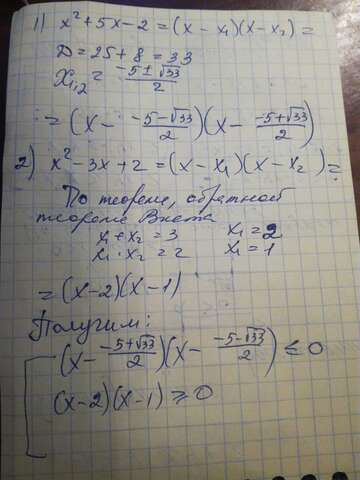 1) x² + 5x - 2 = (x - x₁)(x - x₂) =
D = 25 + 8 = 33
x₁,₂ = (-5 ± √33)/2
= (x - (-5-√33)/2)(x - (-5+√33)/2)
2) x² - 3x + 2 = (x - x₁)(x - x₂) =
По теореме, обратной
теореме Виета
x₁ + x₂ = 3 x₁ = 2
x₁ · x₂ = 2 x₁ = 1
= (x - 2)(x - 1)
Получим:
(x - (-5+√33)/2)(x - (-5-√33)/2) ≤ 0
(x - 2)(x - 1) ≥ 0